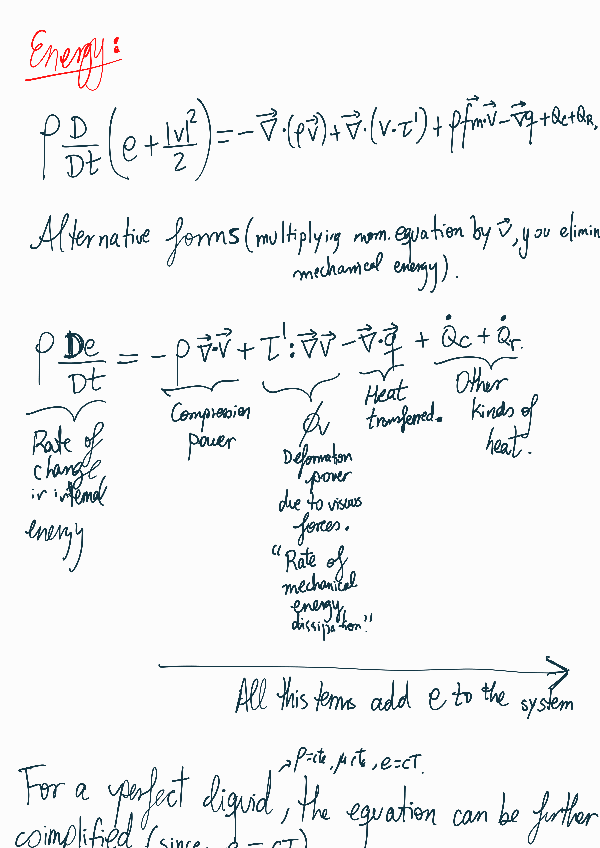 Energy:
ρ D/Dt (e + |v|²/2) = -∇⃗·(p v⃗) + ∇⃗·(v·τ') + ρ f⃗m·v⃗ - ∇⃗q + Qc + QR,
Alternative forms (multiplying mom. equation by v⃗, you elimin
mechanical energy).
ρ De/Dt = -p ∇⃗·v⃗ + τ' : ∇⃗v⃗ - ∇⃗·q⃗ + Q̇c + Q̇r.
Rate of
change
in internal
energy
Compression
power
ϕv
Deformation
power
due to viscous
forces.
"Rate of
mechanical
energy
dissipation."
Heat
transferred.
Other
kinds of
heat.
All this tems add e to the system
→ρ=cte, μ cte, e=cT.
For a perfect liquid, the equation can be further
(since e = cT)